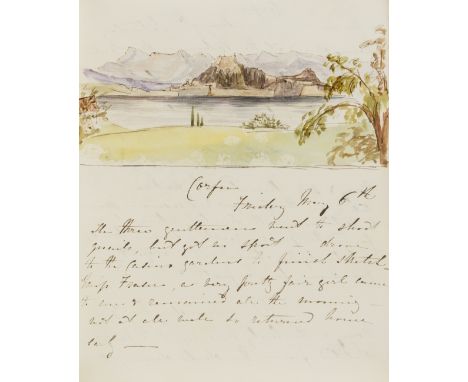 Corfu
Friday May 6th
The three gentlemen went to shoot
quails, but got no sport – drove
to the Casino gardens to finish sketch
Miss Fraser, a very pretty fair girl came
to us & remained all the morning –
not at all well so returned home
early —